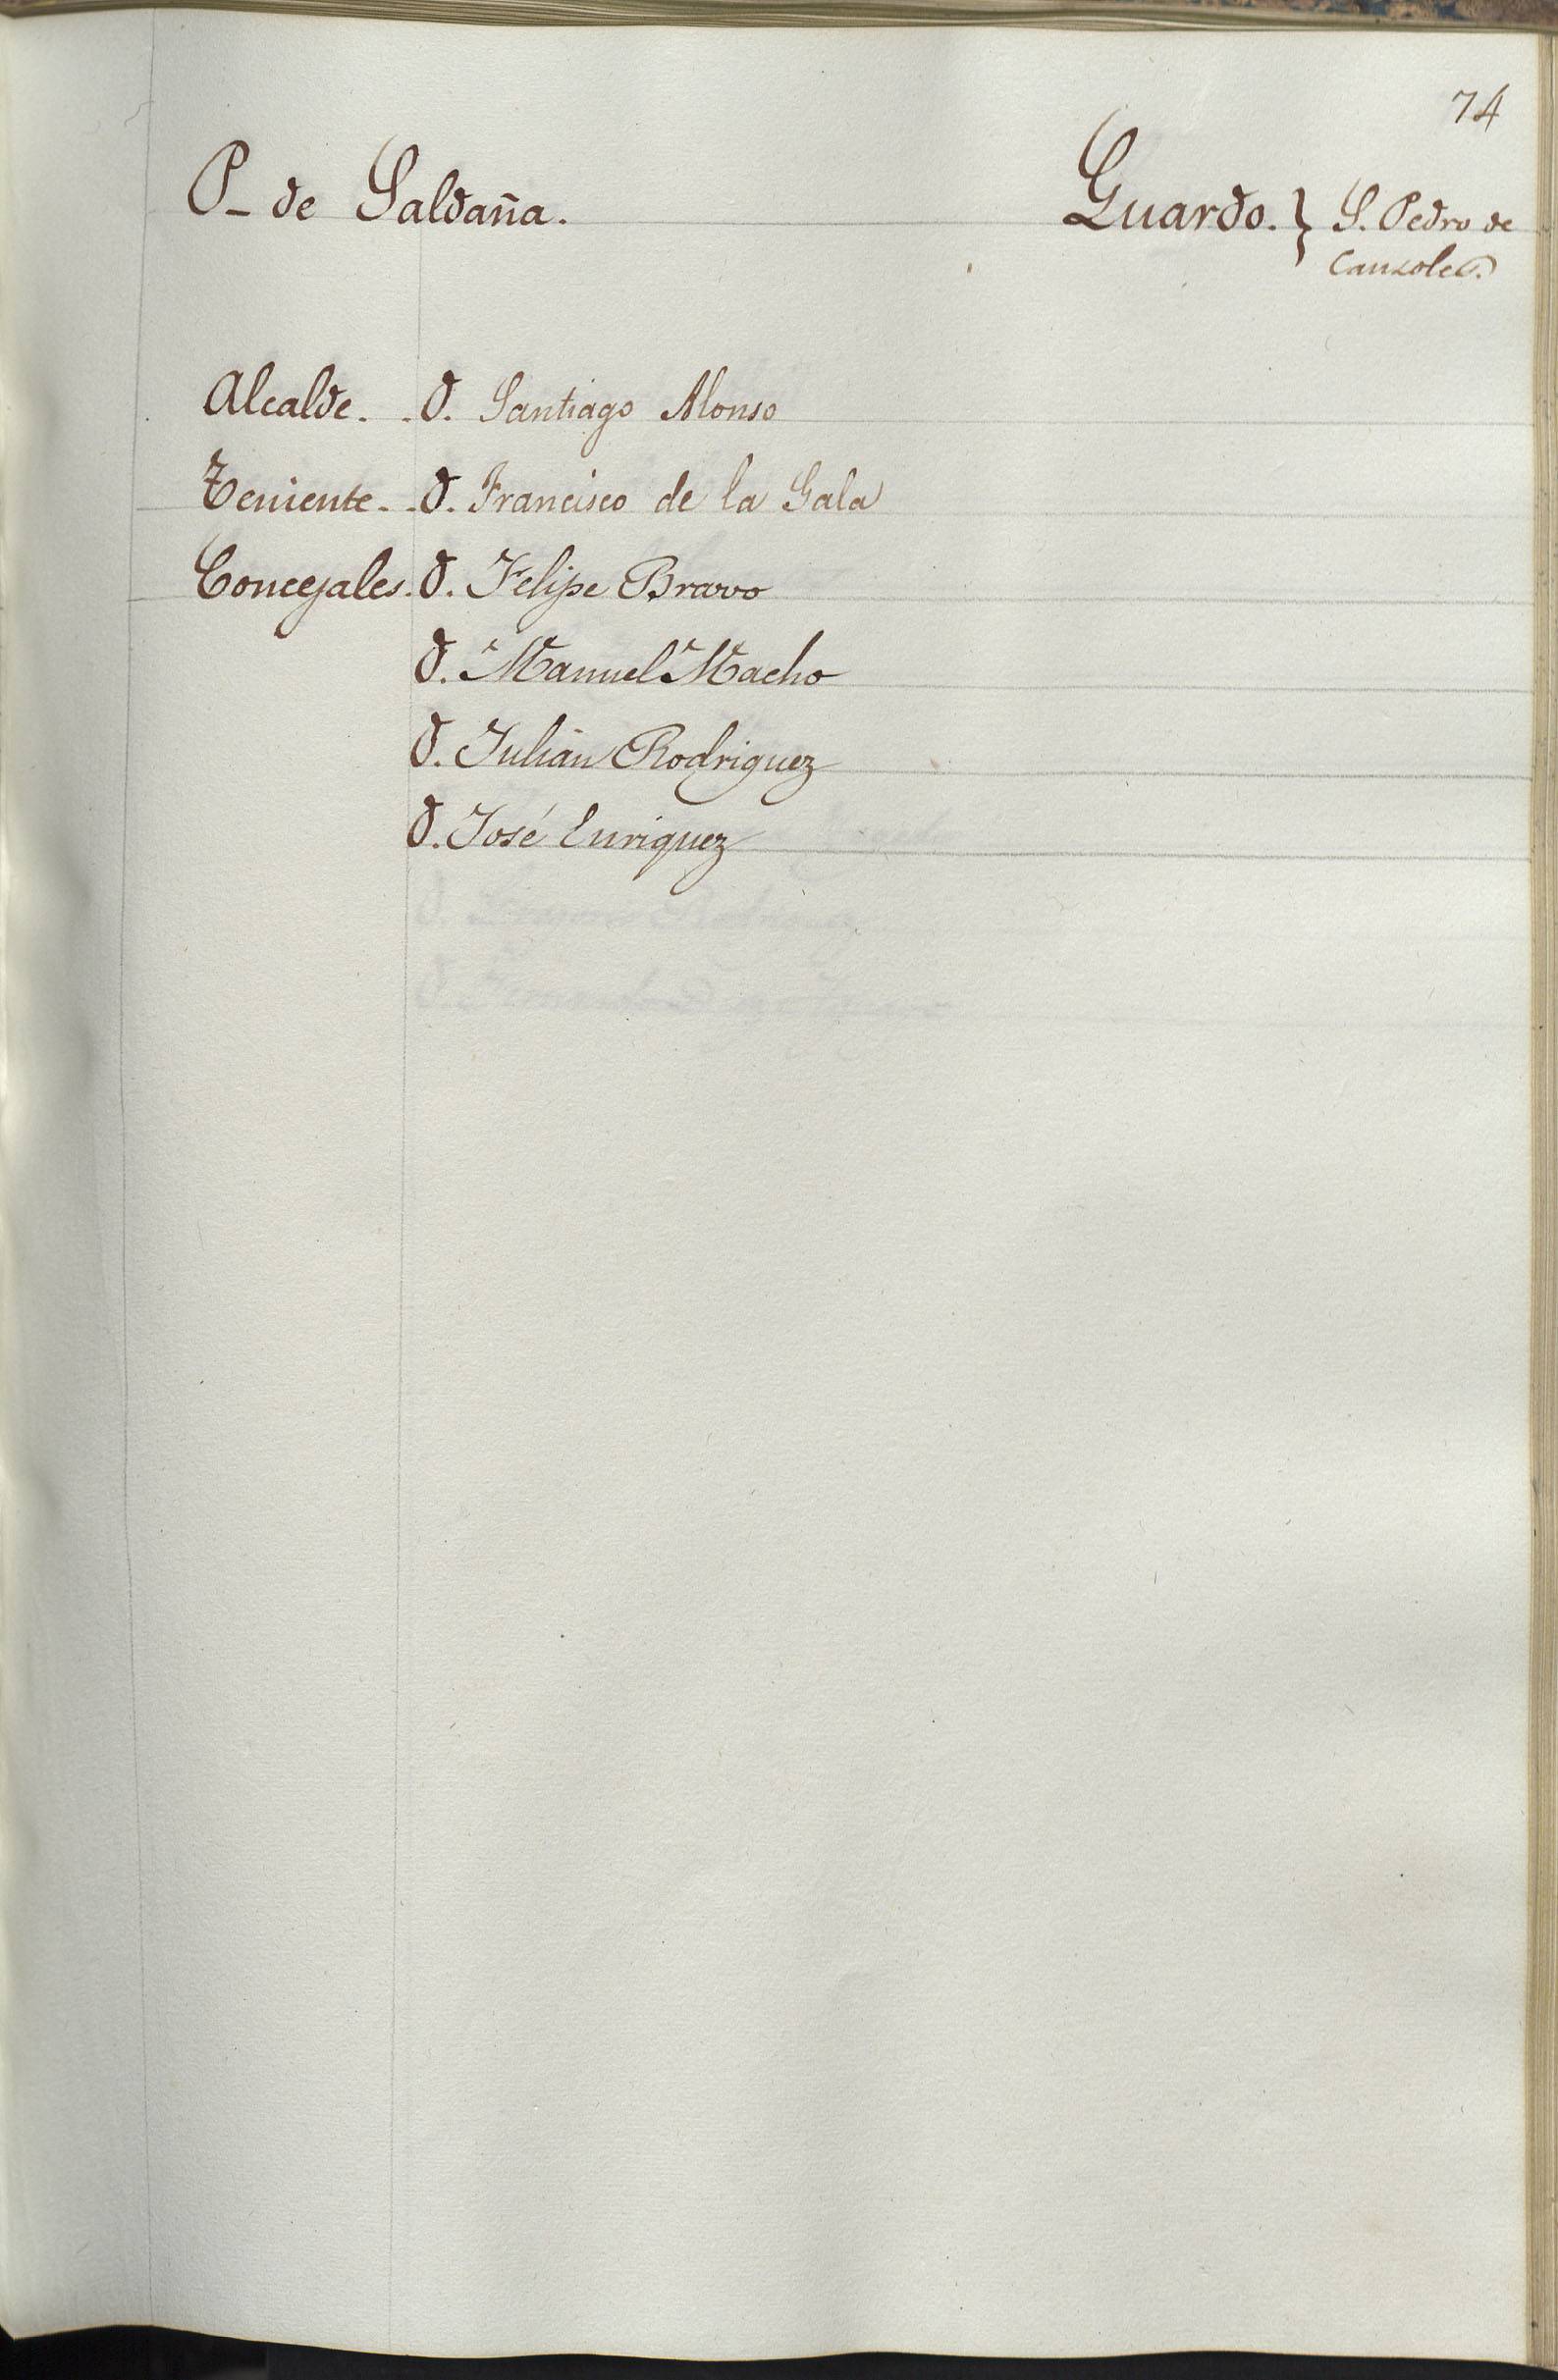 74
P- de Saldaña.
Guardo. } S. Pedro de
Cansoles.
Alcalde. . D. Santiago Alonso
Teniente. . D. Francisco de la Gala
Concejales. D. Felipe Bravo
D. Manuel Macho
D. Julian Rodriguez
D. José Enriquez